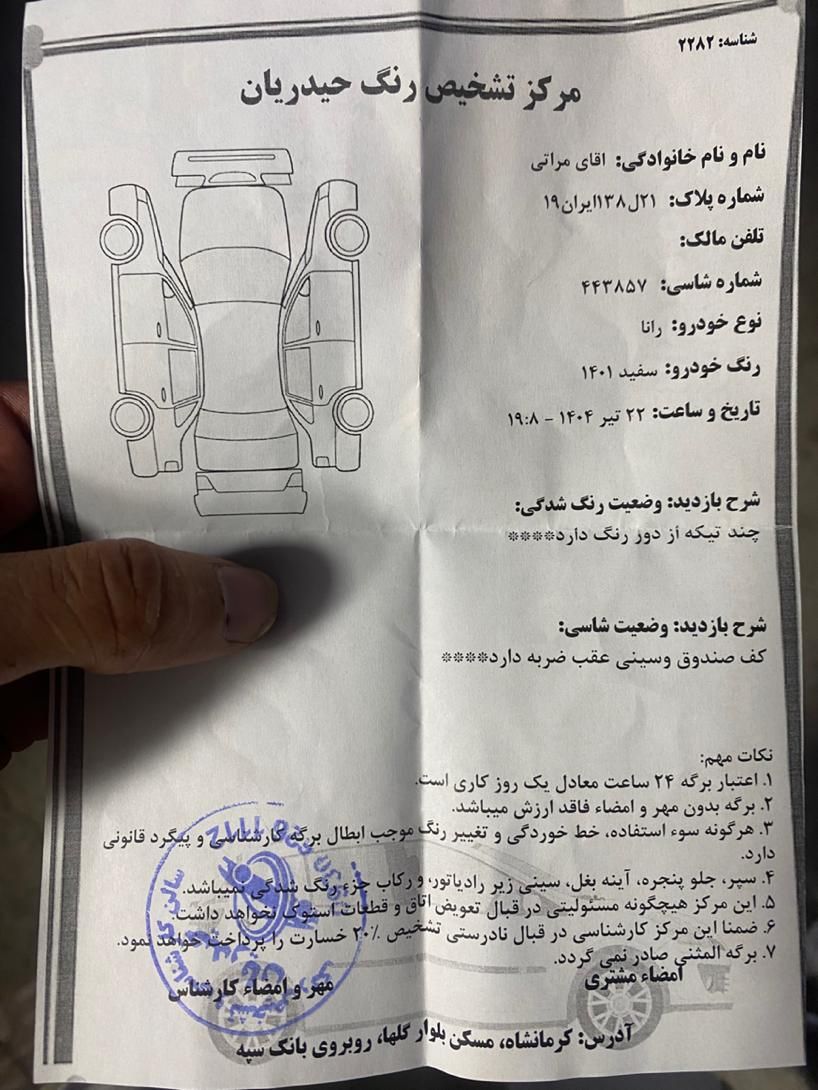 شناسه: ۲۲۸۲
مرکز تشخیص رنگ حیدریان
نام و نام خانوادگی: اقای مراتی
شماره پلاک: ۲۱ل۱۳۸ایران۱۹
تلفن مالک:
شماره شاسی: ۴۴۳۸۵۷
نوع خودرو: رانا
رنگ خودرو: سفید ۱۴۰۱
تاریخ و ساعت: ۲۲ تیر ۱۴۰۴ - ۱۹:۸
شرح بازدید: وضعیت رنگ شدگی:
چند تیکه از دور رنگ دارد****
شرح بازدید: وضعیت شاسی:
کف صندوق وسینی عقب ضربه دارد****
نکات مهم:
۱. اعتبار برگه ۲۴ ساعت معادل یک روز کاری است.
۲. برگه بدون مهر و امضاء فاقد ارزش میباشد.
۳. هرگونه سوء استفاده، خط خوردگی و تغییر رنگ موجب ابطال برگه کارشناسی و پیگرد قانونی
دارد.
۴. سپر، جلو پنجره، آینه بغل، سینی زیر رادیاتور، و رکاب جزء رنگ شدگی نمیباشد.
۵. این مرکز هیچگونه مسئولیتی در قبال تعویض اتاق و قطعات استوک نخواهد داشت.
۶. ضمنا این مرکز کارشناسی در قبال نادرستی تشخیص ۲۰٪ خسارت را پرداخت خواهد نمود.
۷. برگه المثنی صادر نمی گردد.
امضاء مشتری
مهر و امضاء کارشناس
آدرس: کرمانشاه، مسکن بلوار گلها، روبروی بانک سپه